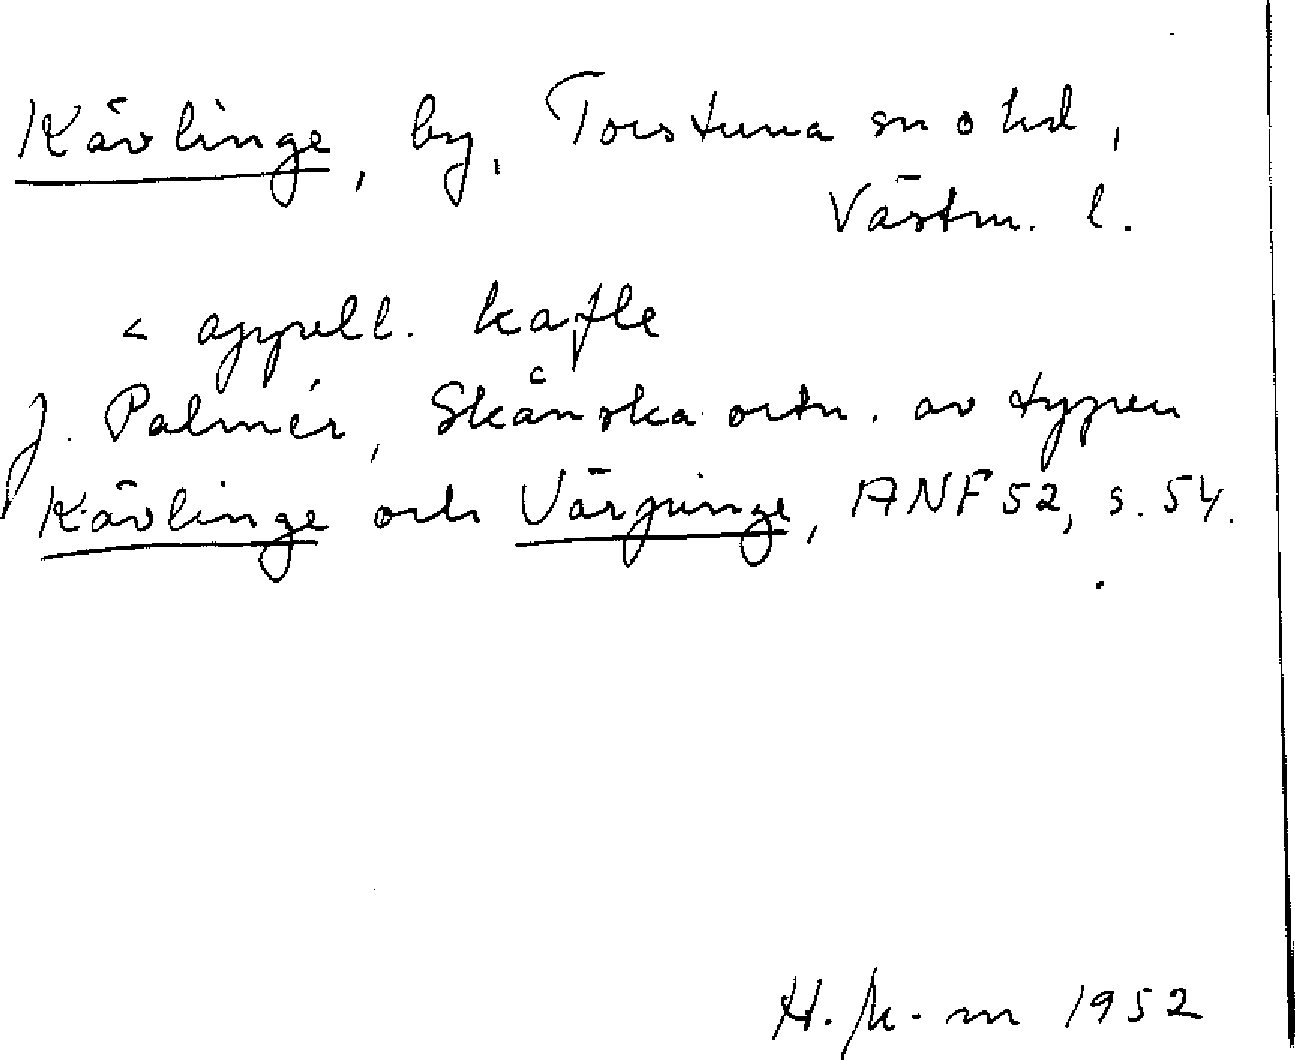 Kävlinge, by, Torstuna sn o hd,
Västm. l.
< appell. kafle
J. Palmér, Skånska ortn. av typen
Kävlinge och Värpinge, ANF 52, s. 54.
1952